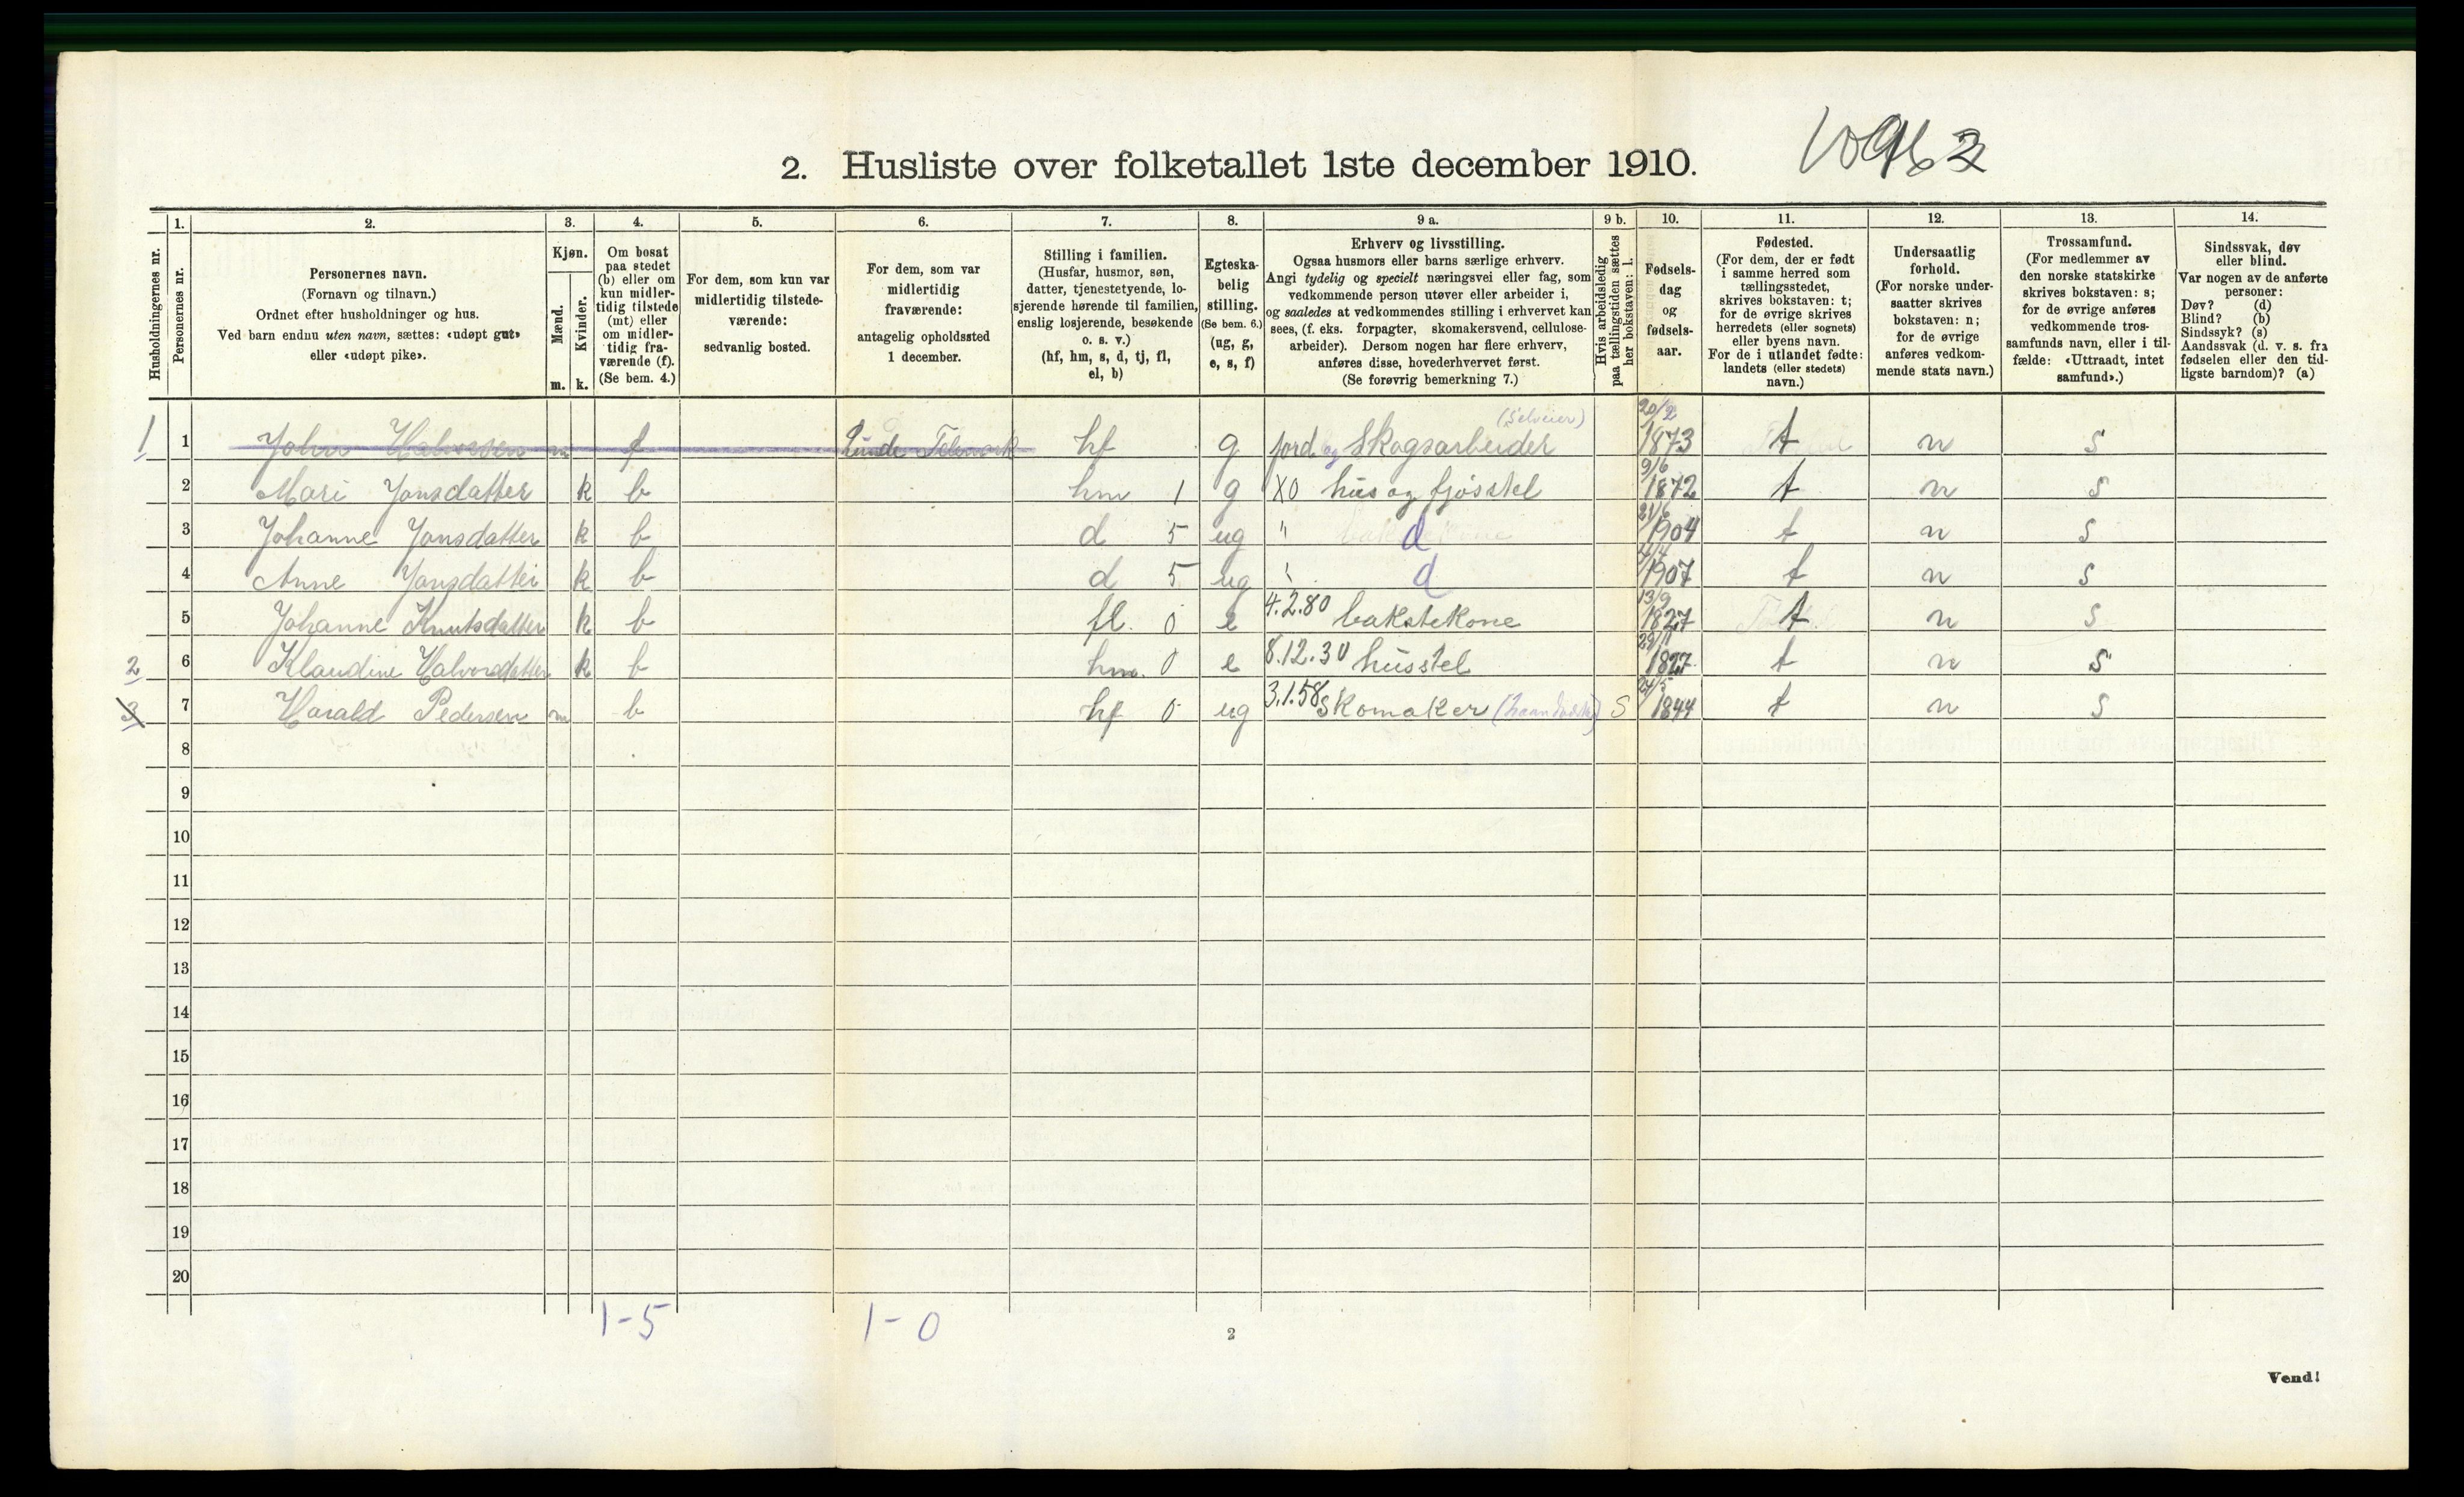 2. Husliste over folketallet 1ste december 1910.
1. 2. 3. 4. 5. 6. 7. 8. 9 a. 9 b. 10. 11. 12. 13. 14.
Husholdningernes nr.
Personernes nr.
Personernes navn.
(Fornavn og tilnavn.)
Ordnet efter husholdninger og hus.
Ved barn endnu uten navn, sættes: «udøpt gut»
eller «udøpt pike».
Kjøn.
Mænd.
Kvinder.
m. k.
Om bosat
paa stedet
(b) eller om
kun midler-
tidig tilstede
(mt) eller
om midler-
tidig fra-
værende (f).
(Se bem. 4.)
For dem, som kun var
midlertidig tilstede-
værende:
sedvanlig bosted.
For dem, som var
midlertidig
fraværende:
antagelig opholdssted
1 december.
Stilling i familien.
(Husfar, husmor, søn,
datter, tjenestetyende, lo-
sjerende hørende til familien,
enslig losjerende, besøkende
o. s. v.)
(hf, hm, s, d, tj, fl,
el, b)
Egteska-
belig
stilling.
(Se bem. 6.)
(ug, g,
e, s, f)
Erhverv og livsstilling.
Ogsaa husmors eller barns særlige erhverv.
Angi tydelig og specielt næringsvei eller fag, som
vedkommende person utøver eller arbeider i,
og saaledes at vedkommendes stilling i erhvervet kan
sees, (f. eks. forpagter, skomakersvend, cellulose-
arbeider). Dersom nogen har flere erhverv,
anføres disse, hovederhvervet først.
(Se forøvrig bemerkning 7.)
Hvis arbeidsledig
paa tællingstiden sættes
her bokstaven: l.
Fødsels-
dag
og
fødsels-
aar.
Fødested.
(For dem, der er født
i samme herred som
tællingsstedet,
skrives bokstaven: t;
for de øvrige skrives
herredets (eller sognets)
eller byens navn.
For de i utlandet fødte:
landets (eller stedets)
navn.)
Undersaatlig
forhold.
(For norske under-
saatter skrives
bokstaven: n;
for de øvrige
anføres vedkom-
mende stats navn.)
Trossamfund.
(For medlemmer av
den norske statskirke
skrives bokstaven: s;
for de øvrige anføres
vedkommende tros-
samfunds navn, eller i til-
fælde: «Uttraadt, intet
samfund».)
Sindssvak, døv
eller blind.
Var nogen av de anførte
personer:
Døv? (d)
Blind? (b)
Sindssyk? (s)
Aandssvak (d. v. s. fra
fødselen eller den tid-
ligste barndom)? (a)
1 1 John Halvorsen m f Lunde Telemark hf g jord og Skogsarbeider (Selveier) 20/2 1873 t n s
2 Mari Jonsdatter k b hm 1 g X0 hus og fjøsstel 9/6 1872 t n s
3 Johanne Jonsdatter k b d 5 ug " d 21/6 1904 t n s
4 Anne Jonsdatter k b d 5 ug d 4/4 1907 t n s
5 Johanne Knutsdatter k b fl. 0 e 4.2.80 bakstekone 13/9 1827 t n s
2 6 Klaudine Halvorsdatter k b hm. 0 e 8.12.30 husstel 29/11 1827 t n s
3 7 Harald Pedersen m b hf 0 ug 3.1.58 Skomaker S 24/5 1844 t n s
8
9
10
11
12
13
14
15
16
17
18
19
20
1-5 1-0
2
Vend!